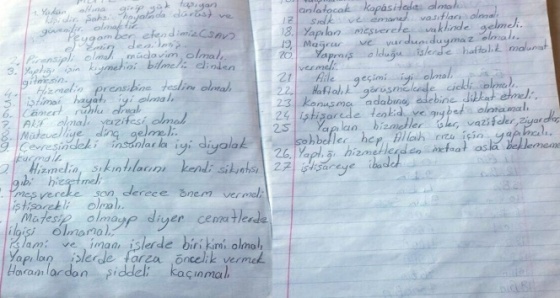 1. Yukarı altına girip çok taşıyan
hayatında dürüst ve
güvenilir olmalı
Peygamber efendimiz (SAV)
Emin denilmiş
2. Prensipli olmalı müdavim olmalı
3. Yaptığı için kıymetini bilmeli dinden
gitmesin.
4. Hizmetin prensibine teslim olmalı
5. İçtimai hayatı iyi olmalı
6. Cömert ruhlu olmalı
olmalı
Mütevelliye dinç gelmeli.
Çevresindeki insanlarla iyi diyalok
kurmalı
Hizmetin, sıkıntılarını kendi sıkıntısı
gibi hissetmeli
meşvereke son derece önem vermeli
istişarekli olmalı
Matesip olmayıp diyer cematlerde
ilgisi olmamalı
İslami ve imani işlerde birikimi olmalı
Yapılan işlerde farza öncelik vermek
Haramlardan şiddeli kaçınmalı
anlatacak kapasitede olmalı
17. sıdk ve emanet vasıtları olmalı
18. Yapılan meşverete vaktinde gelmeli.
19. Mağrur ve vurdunduymaz olmalı
20 Yapmış olduğu işlerde haftalık malumat
vermeli.
21 Aile geçimi iyi olmalı
22 Haftalık görüşmelerde ciddi olmalı.
23 Konuşma adabına edebine dikkat etmeli.
24 İstişarede tenkid ve gıybet olmamalı
25 Yapılan hizmetler işler, vazifeler, ziyaretler
sohbetler hep fillah rıza için yapılmalı
26. Yaptığı hizmetlerden mefaat asla beklememe
27 istişareye ibadet